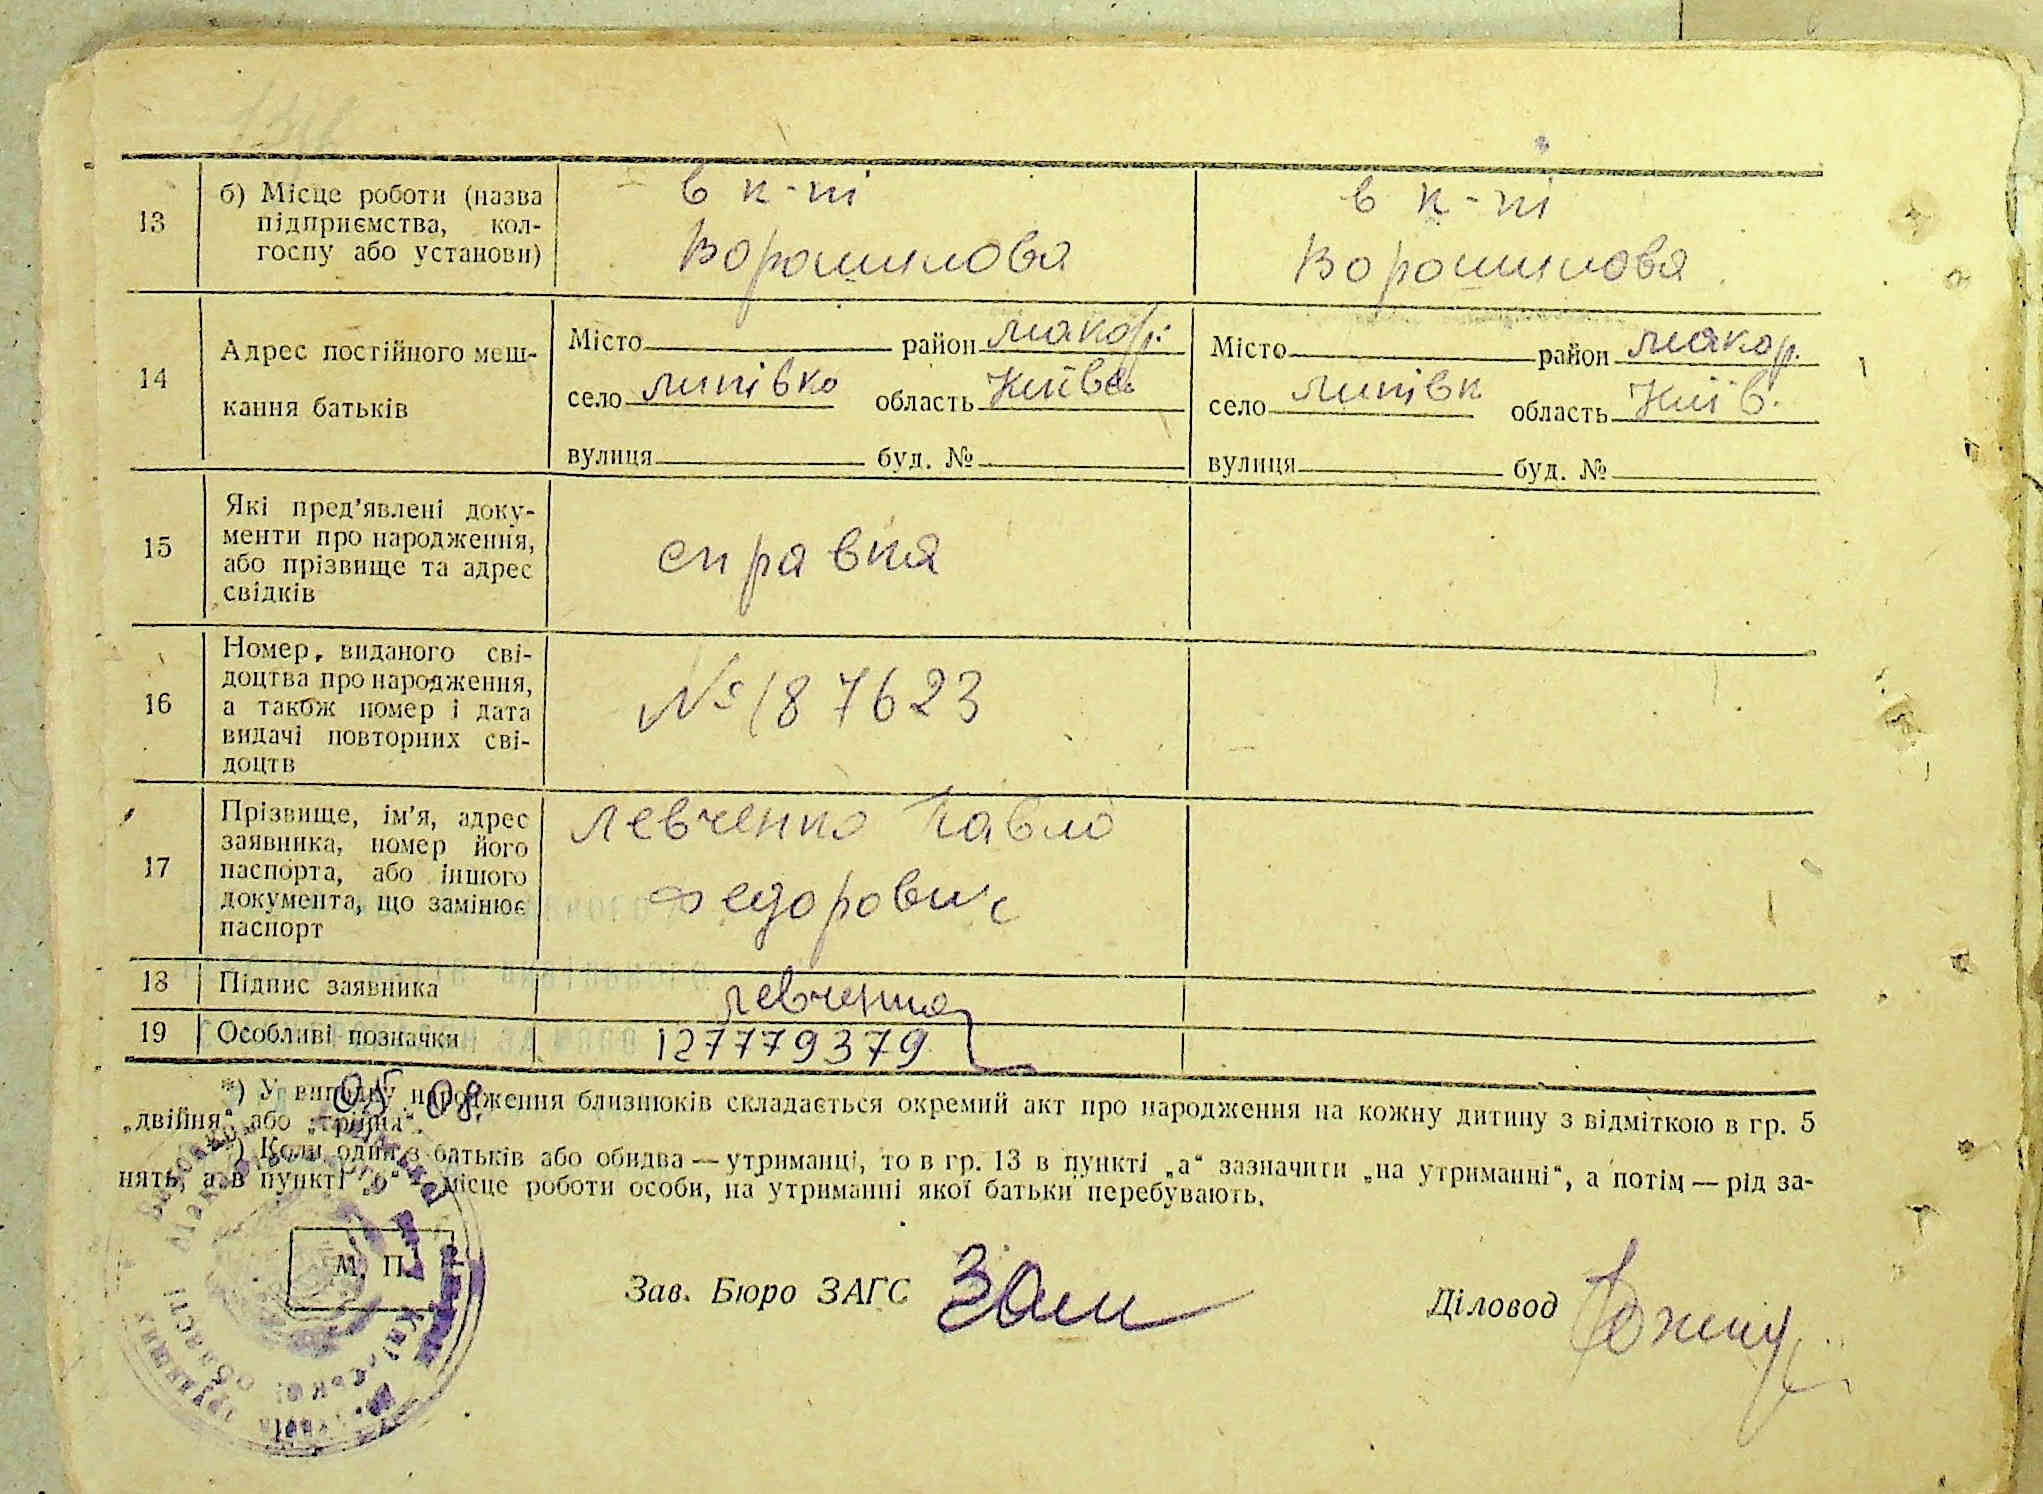 13
б) Місце роботи (назва
підприємства, кол-
госпу або установи)
в к-пі
Ворошилова
в к-пі
Ворошилова
14
Адрес постійного меш-
кання батьків
Місто район Макар.
село Липівка область Київс.
вулиця буд. №
Місто район Макар.
село Липівк область Київ.
вулиця буд. №
15
Які пред'явлені доку-
менти про народження,
або прізвище та адрес
свідків
справка
16
Номер, виданого сві-
доцтва про народження,
а також номер і дата
видачі повторних сві-
доцтв
№ 187623
17
Прізвище, ім'я, адрес
заявника, номер його
паспорта, або іншого
документа, що замінює
паспорт
Левченко Павло
Федорович
18 Підпис заявника
Левченко
19 Особливі позначки
127779379
*) У випадку народження близнюків складається окремий акт про народження на кожну дитину з відміткою в гр. 5
„двійня“ або „трійня“.
) Коли один з батьків або обидва — утриманці, то в гр. 13 в пункті „а“ зазначити „на утриманні“, а потім — рід за-
нять, а в пункті „б“ місце роботи особи, на утриманні якої батьки перебувають.
М. П.
Київської
області
трудящих
Зав. Бюро ЗАГС
Діловод